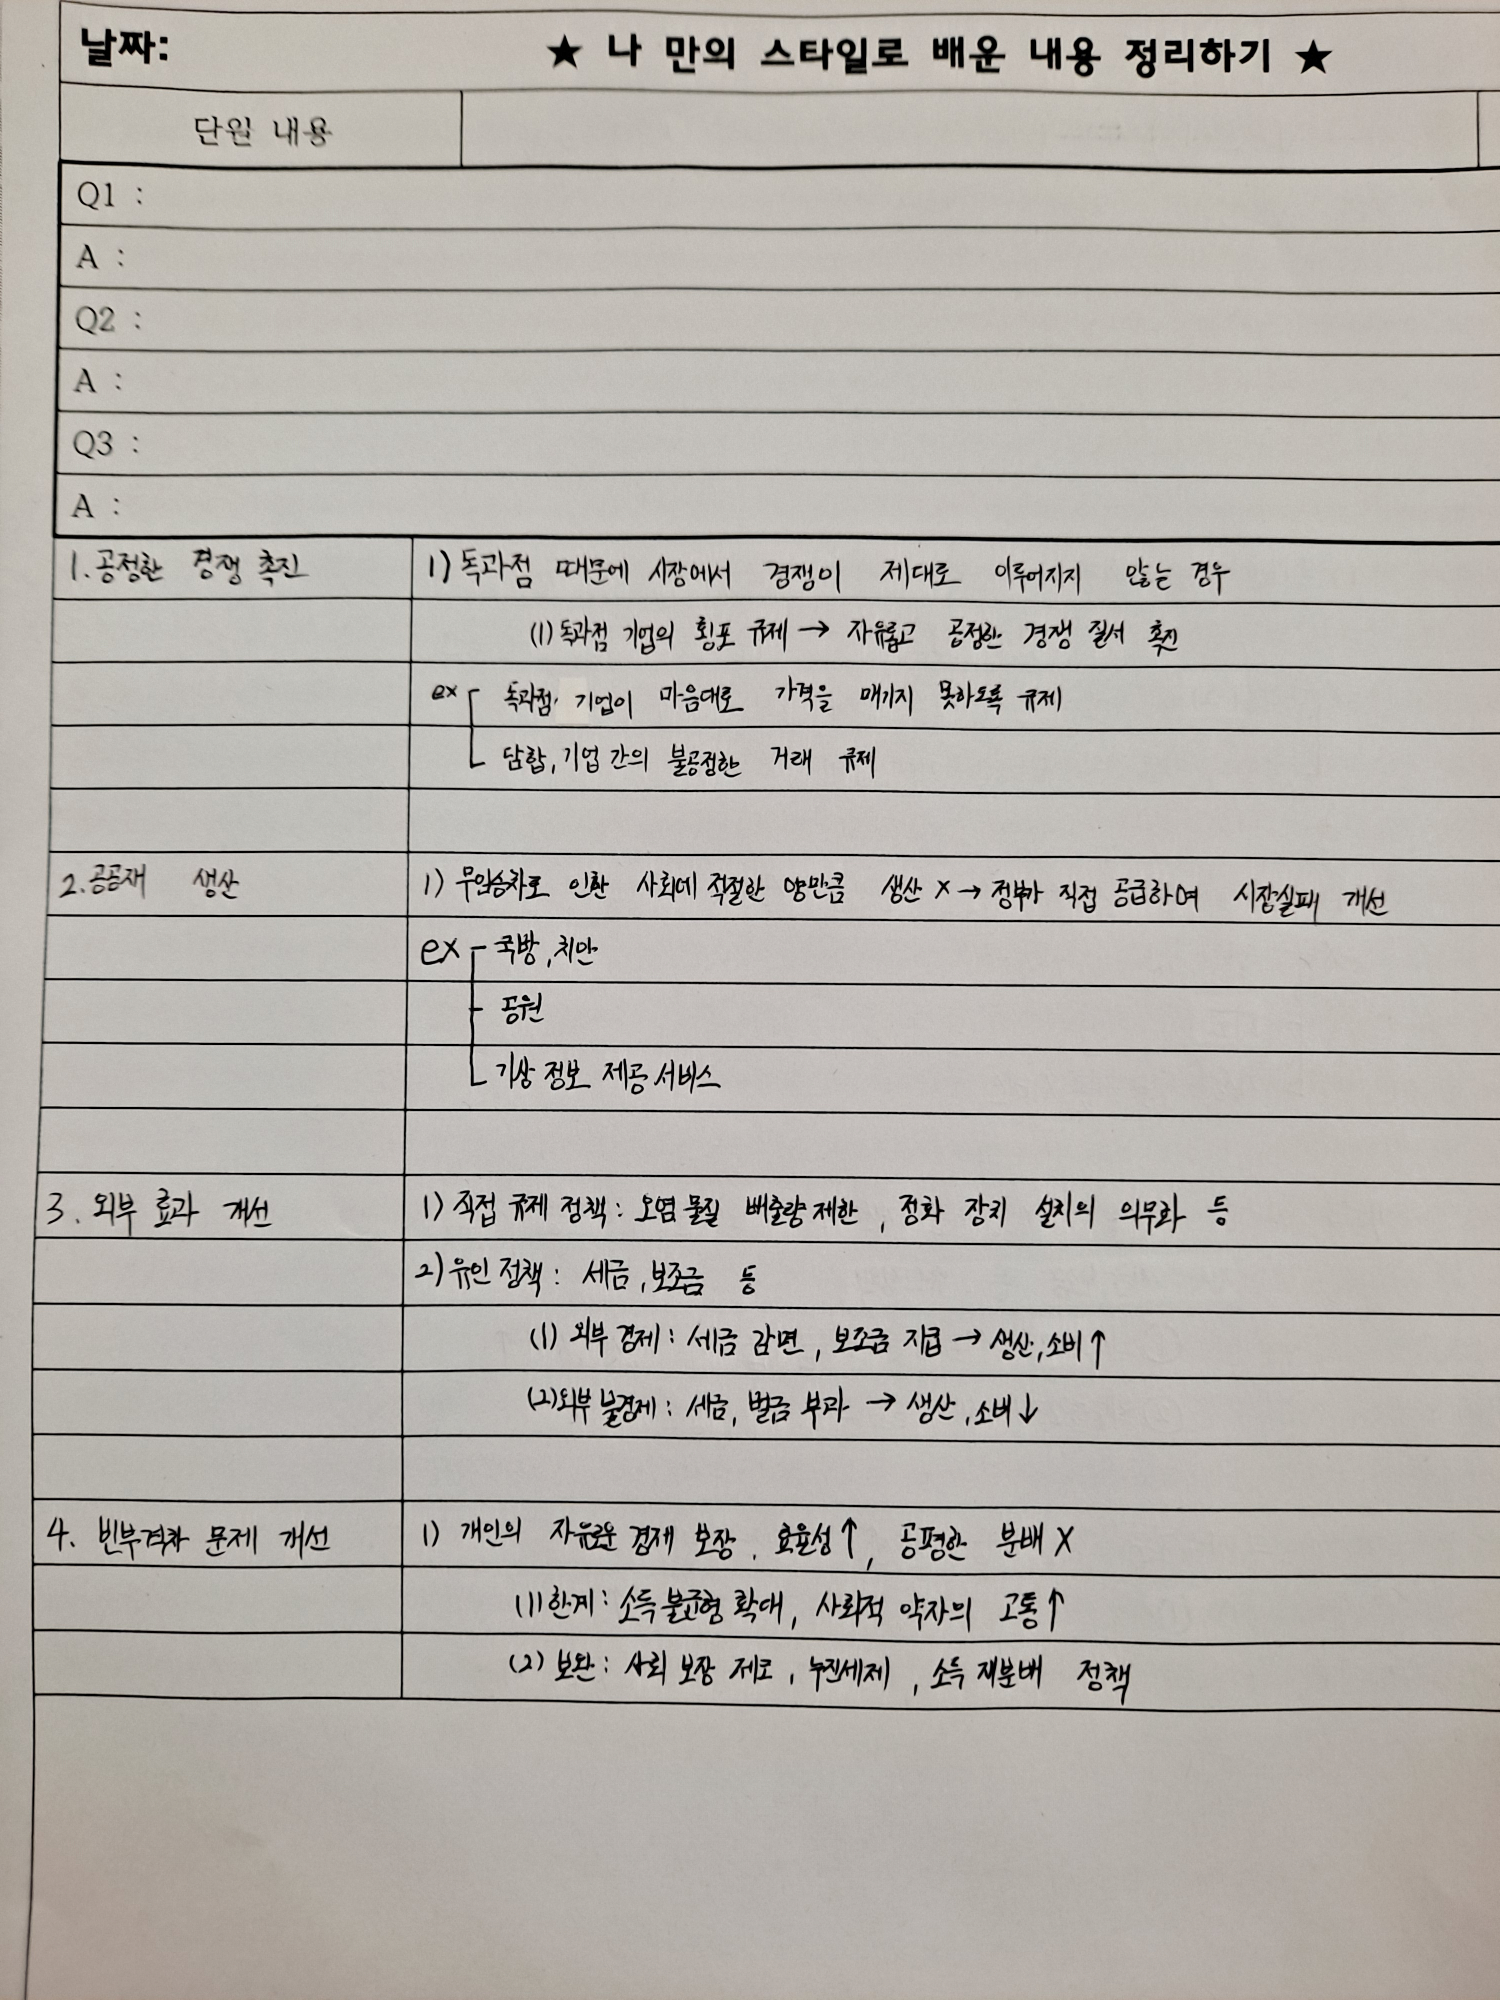 날짜: ★ 나 만의 스타일로 배운 내용 정리하기 ★
단원 내용
Q1 :
A :
Q2 :
A :
Q3 :
A :
1. 공정한 경쟁 촉진
1) 독과점 때문에 시장에서 경쟁이 제대로 이루어지지 않는 경우
(1) 독과점 기업의 횡포 규제 → 자유롭고 공정한 경쟁 질서 촉진
ex 독과점 기업이 마음대로 가격을 매기지 못하도록 규제
담합, 기업 간의 불공정한 거래 규제
2. 공공재 생산
1) 무임승차로 인한 사회에 적절한 양만큼 생산 X → 정부가 직접 공급하여 시장실패 개선
ex 국방, 치안
공원
기상 정보 제공 서비스
3. 외부 효과 개선
1) 직접 규제 정책 : 오염 물질 배출량 제한, 정화 장치 설치의 의무화 등
2) 유인 정책 : 세금, 보조금 등
(1) 외부 경제 : 세금 감면, 보조금 지급 → 생산, 소비 ↑
(2) 외부 불경제 : 세금, 벌금 부과 → 생산, 소비 ↓
4. 빈부격차 문제 개선
1) 개인의 자유로운 경제 보장, 효율성 ↑, 공평한 분배 X
(1) 한계 : 소득 불균형 확대, 사회적 약자의 고통 ↑
(2) 보완 : 사회 보장 제도, 누진세제, 소득 재분배 정책